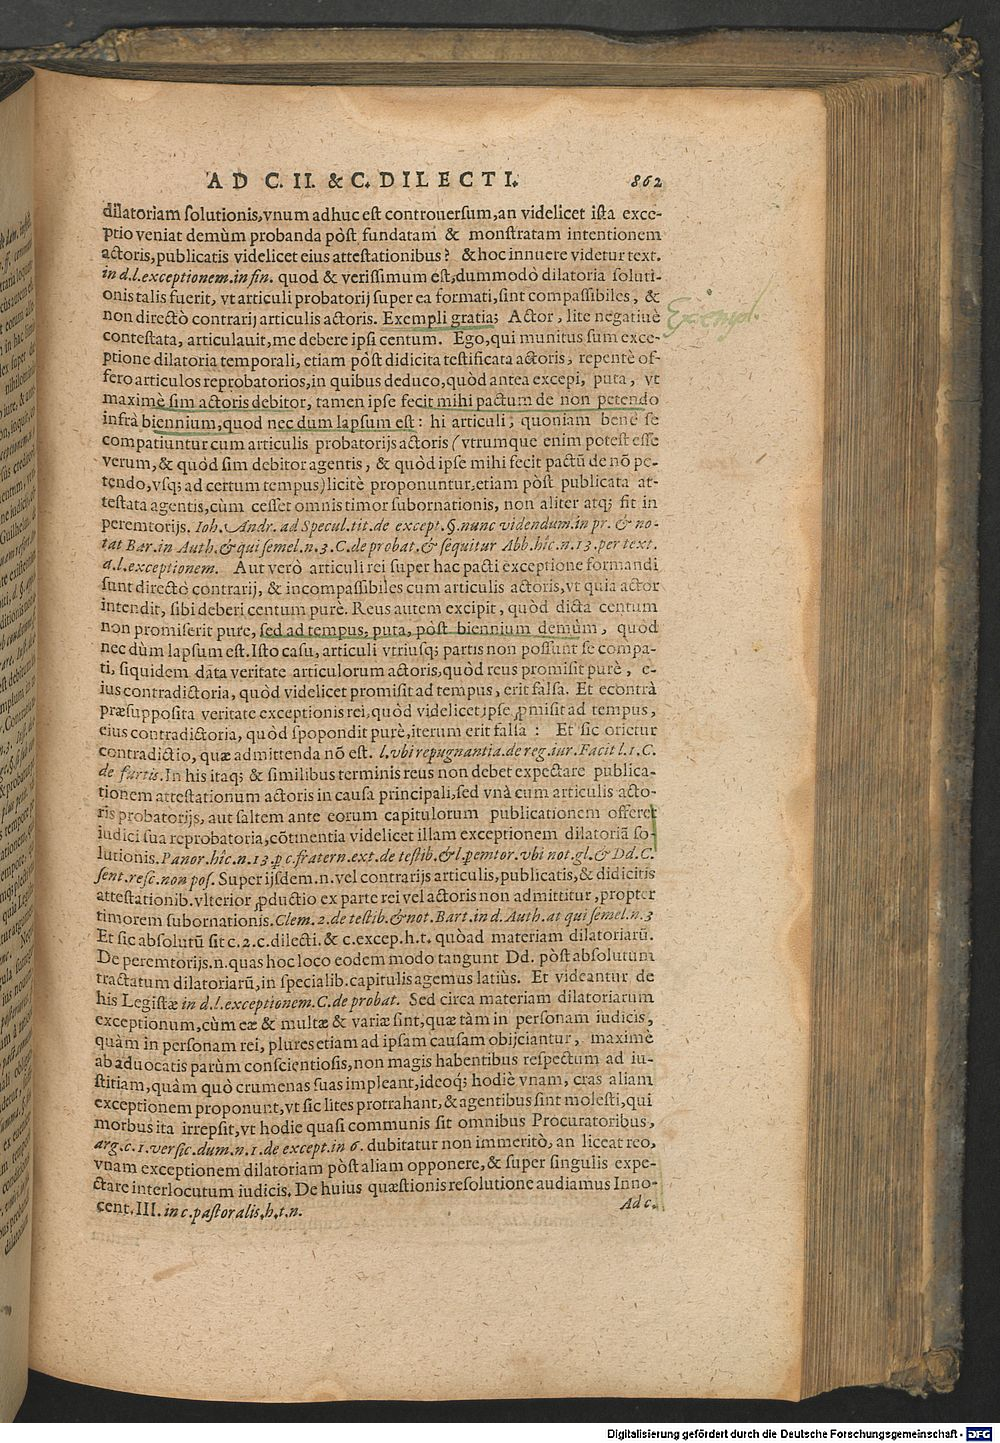 AD C. II. & C. DILECTI. 862
dilatoriam solutionis, vnum adhuc est controuersum, an videlicet ista exce-
ptio veniat demùm probanda pòst fundatam & monstratam intentionem
actoris, publicatis videlicet eius attestationibus? & hoc innuere videtur text.
in d.l. exceptionem. in fin. quod & verissimum est, dummodò dilatoria soluti-
onis talis fuerit, vt articuli probatorij super ea formati, sint compassibiles, &
non directò contrarij articulis actoris. Exempli gratia; Actor, lite negatiuè
Exempl.
contestata, articulauit, me debere ipsi centum. Ego, qui munitus sum exce-
ptione dilatoria temporali, etiam pòst didicita testificata actoris, repentè of-
fero articulos reprobatorios, in quibus deduco, quòd antea excepi, puta, vt
maximè sim actoris debitor, tamen ipse fecit mihi pactum de non petendo
infrà biennium, quod nec dum lapsum est: hi articuli, quoniam benè se
compatiuntur cum articulis probatorijs actoris (vtrumque enim potest esse
verum, & quòd sim debitor agentis, & quòd ipse mihi fecit pactū de nō pe-
tendo, vsq; ad certum tempus) licitè proponuntur, etiam pòst publicata at-
testata agentis, cùm cesset omnis timor subornationis, non aliter atq; fit in
peremtorijs. Ioh. Andr. ad Specul. tit. de except. §. nunc videndum. in pr. & no-
tat Bar. in Auth. & qui semel. n. 3. C. de probat. & sequitur Abb. hîc. n. 13. per text.
d.l. exceptionem. Aut verò articuli rei super hac pacti exceptione formandi
sunt directò contrarij, & incompassibiles cum articulis actoris, vt quia actor
intendit, sibi deberi centum purè. Reus autem excipit, quòd dicta centum
non promiserit pure, sed ad tempus, puta, pòst biennium demùm, quod
nec dùm lapsum est. Isto casu, articuli vtriusq; partis non possunt se compa-
ti, siquidem data veritate articulorum actoris, quòd reus promisit purè, e-
ius contradictoria, quòd videlicet promisit ad tempus, erit falsa. Et econtrà
præsupposita veritate exceptionis rei, quòd videlicet ipse ꝓmisit ad tempus,
eius contradictoria, quòd spopondit purè, iterum erit falsa: Et sic orietur
contradictio, quæ admittenda nō est. l. vbi repugnantia. de reg. iur. Facit l. 1. C.
de furtis. In his itaq; & similibus terminis reus non debet expectare publica-
tionem attestationum actoris in causa principali, sed vnà cum articulis acto-
ris probatorijs, aut saltem ante eorum capitulorum publicationem offeret
iudici sua reprobatoria, cōtinentia videlicet illam exceptionem dilatoriā so-
lutionis. Panor. hîc. n. 13. ꝑ c. fratern. ext. de testib. & l. ꝑemtor. vbi not. gl. & Dd. C.
sent. resc. non pos. Super ijsdem. n. vel contrarijs articulis, publicatis, & didicitis
attestationib. vlterior ꝓductio ex parte rei vel actoris non admittitur, propter
timorem subornationis. Clem. 2. de testib. & not. Bart. in d. Auth. at qui semel. n. 3
Et sic absolutū sit c. 2. c. dilecti. & c. excep. h. t. quòad materiam dilatoriarū.
De peremtorijs. n. quas hoc loco eodem modo tangunt Dd. pòst absolutum
tractatum dilatoriarū, in specialib. capitulis agemus latiùs. Et videantur de
his Legistæ in d. l. exceptionem. C. de probat. Sed circa materiam dilatoriarum
exceptionum, cùm eæ & multæ & variæ sint, quæ tàm in personam iudicis,
quàm in personam rei, plures etiam ad ipsam causam obijciantur, maximè
ab aduocatis parùm conscientiosis, non magis habentibus respectum ad iu-
stitiam, quàm quò crumenas suas impleant, ideoq; hodiè vnam, cras aliam
exceptionem proponunt, vt sic lites protrahant, & agentibus sint molesti, qui
morbus ita irrepsit, vt hodie quasi communis sit omnibus Procuratoribus,
arg. c. 1. versic. dum. n. 1. de except. in 6. dubitatur non immeritò, an liceat reo,
vnam exceptionem dilatoriam pòst aliam opponere, & super singulis expe-
ctare interlocutum iudicis. De huius quæstionis resolutione audiamus Inno-
cent. III. in c. pastoralis. h. t. n. Ad c.
Digitalisierung gefördert durch die Deutsche Forschungsgemeinschaft - DFG